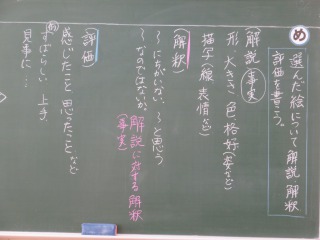 め
選んだ絵について解説 解釈
評価を書こう。
(解説)(事実)
形 大きさ 色 格好(姿など)
描写(線 表情など)
(解釈)
～にちがいない、～と思う
～なのではないか。
解説に対する解釈
(事実)
(評価)
感じたこと 思ったこと など
例 すばらしい 上手
見事に…